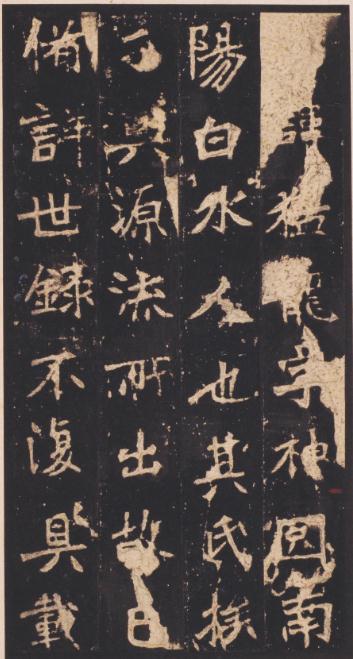 諱猛龍字神南
陽白水人也其氏族
源流所出故
備詳世錄不復具載